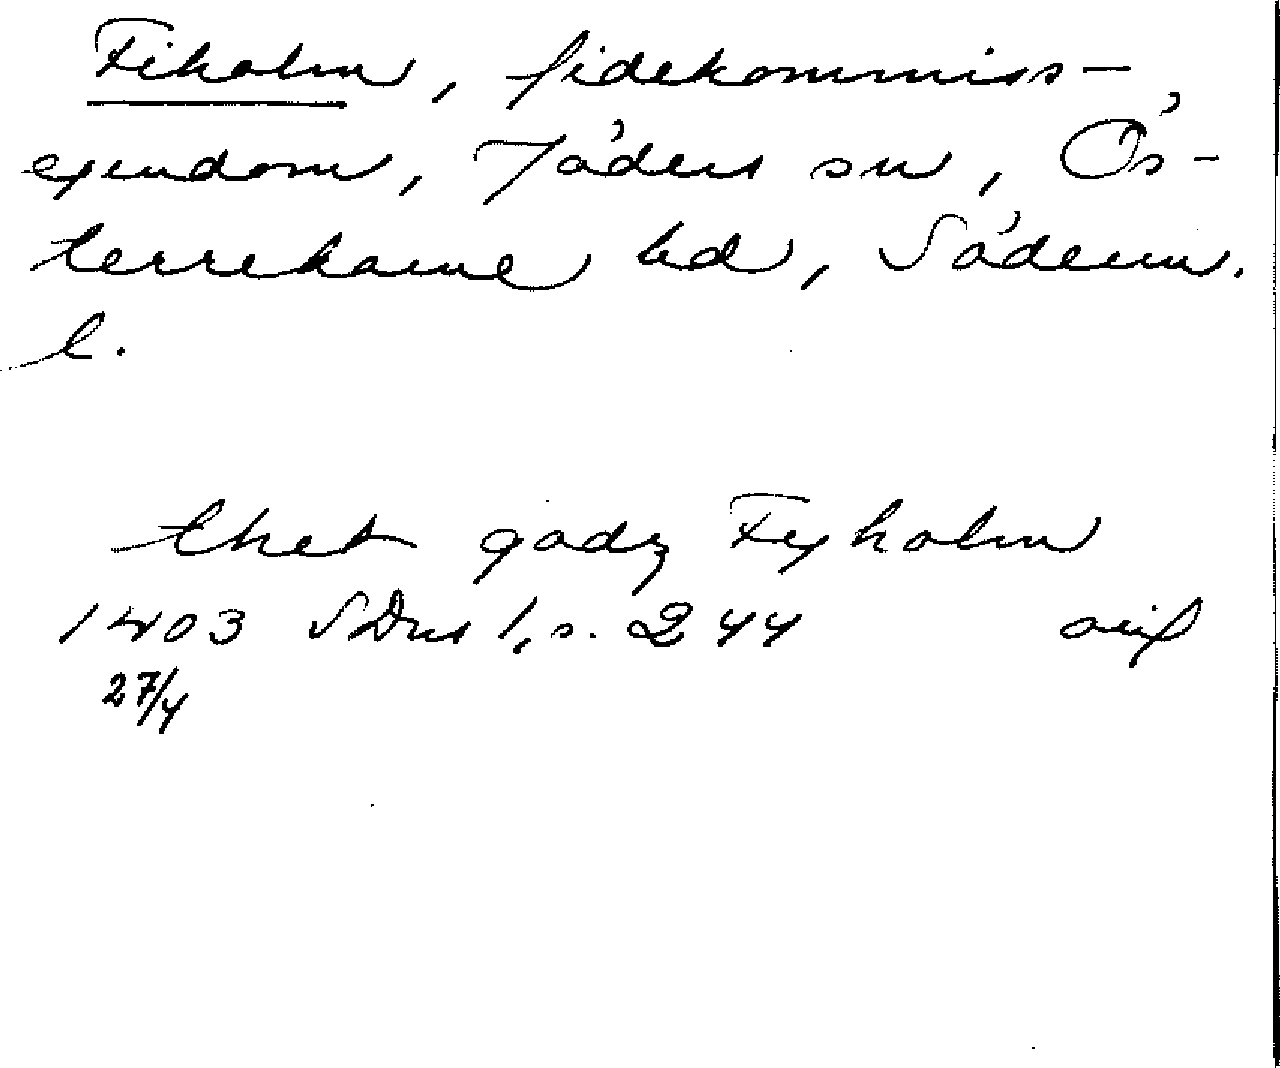 Fiholm, fidekommiss-
egendom, Jäders sn, Ös-
terrekarne hd, Söderm.
l.
thet godz Fyholm
1403 SDns 1, s. 244 avif
27/4